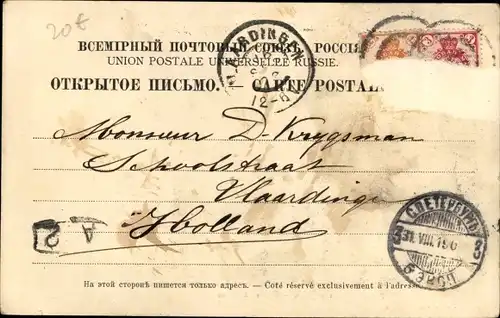 20€
ВСЕМІРНЫЙ ПОЧТОВЫЙ СОЮЗЪ. РОССІЯ
UNION POSTALE UNIVERSELLE RUSSIE.
ОТКРЫТОЕ ПИСЬМО. — CARTE POSTALE
VLAARDINGEN
12-6
Monsieur D. Krygsman
Schoolstraat
Vlaardingen
Holland
С.ПЕТЕРБУРГЪ
3 31.VIII.190 8
A
2
На этой сторонѣ пишется только адресъ. — Coté réservé exclusivement à l'adresse